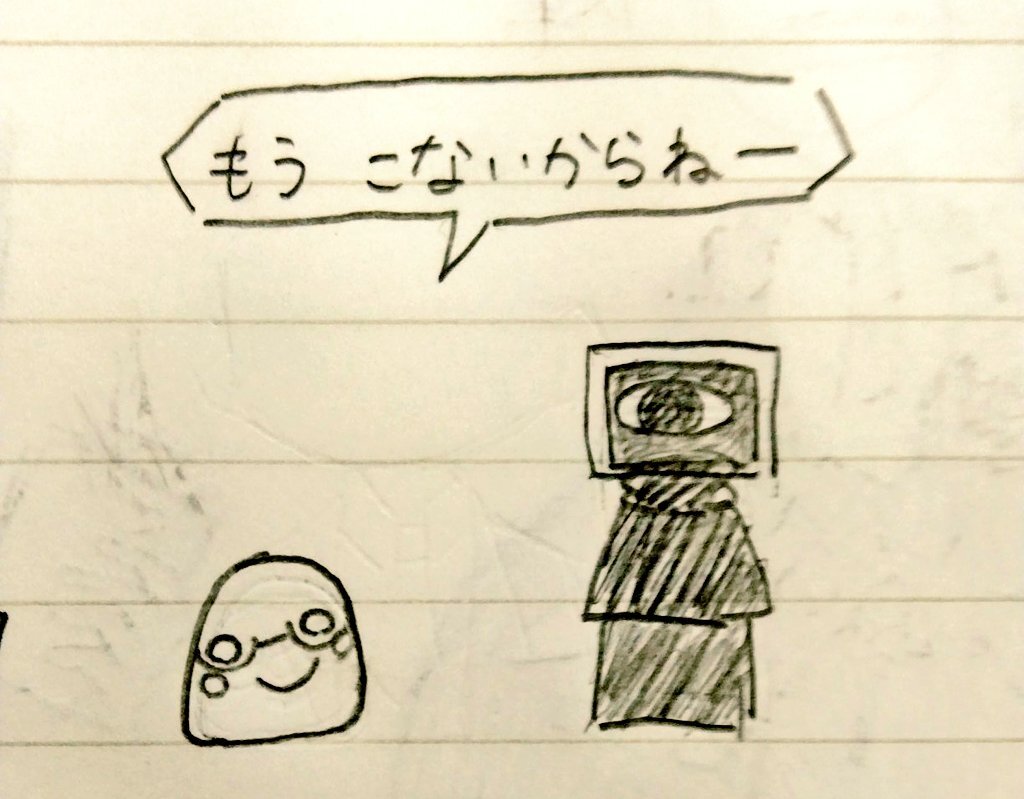 もう こないからねー